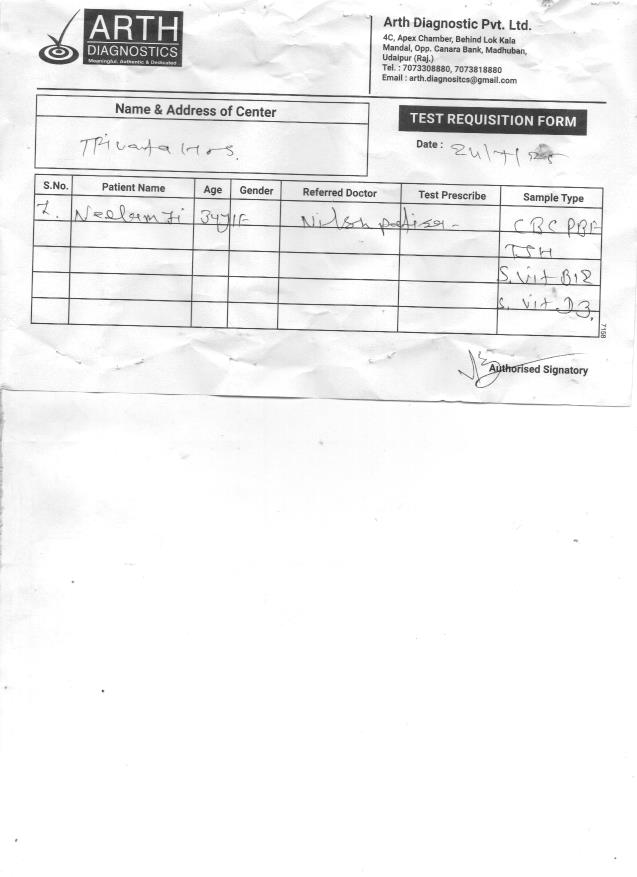 ARTH
DIAGNOSTICS
Meaningful, Authentic & Dedicated
Arth Diagnostic Pvt. Ltd.
4C, Apex Chamber, Behind Lok Kala
Mandal, Opp. Canara Bank, Madhuban,
Udaipur (Raj.)
Tel. : 7073308880, 7073818880
Email : arth.diagnositcs@gmail.com
Name & Address of Center
TEST REQUISITION FORM
Date :
S.No. Patient Name Age Gender Referred Doctor Test Prescribe Sample Type
1. Neelam Ji 34y/F CBC PBF
TSH
S. Vit B12
S. Vit D3.
7158
Authorised Signatory